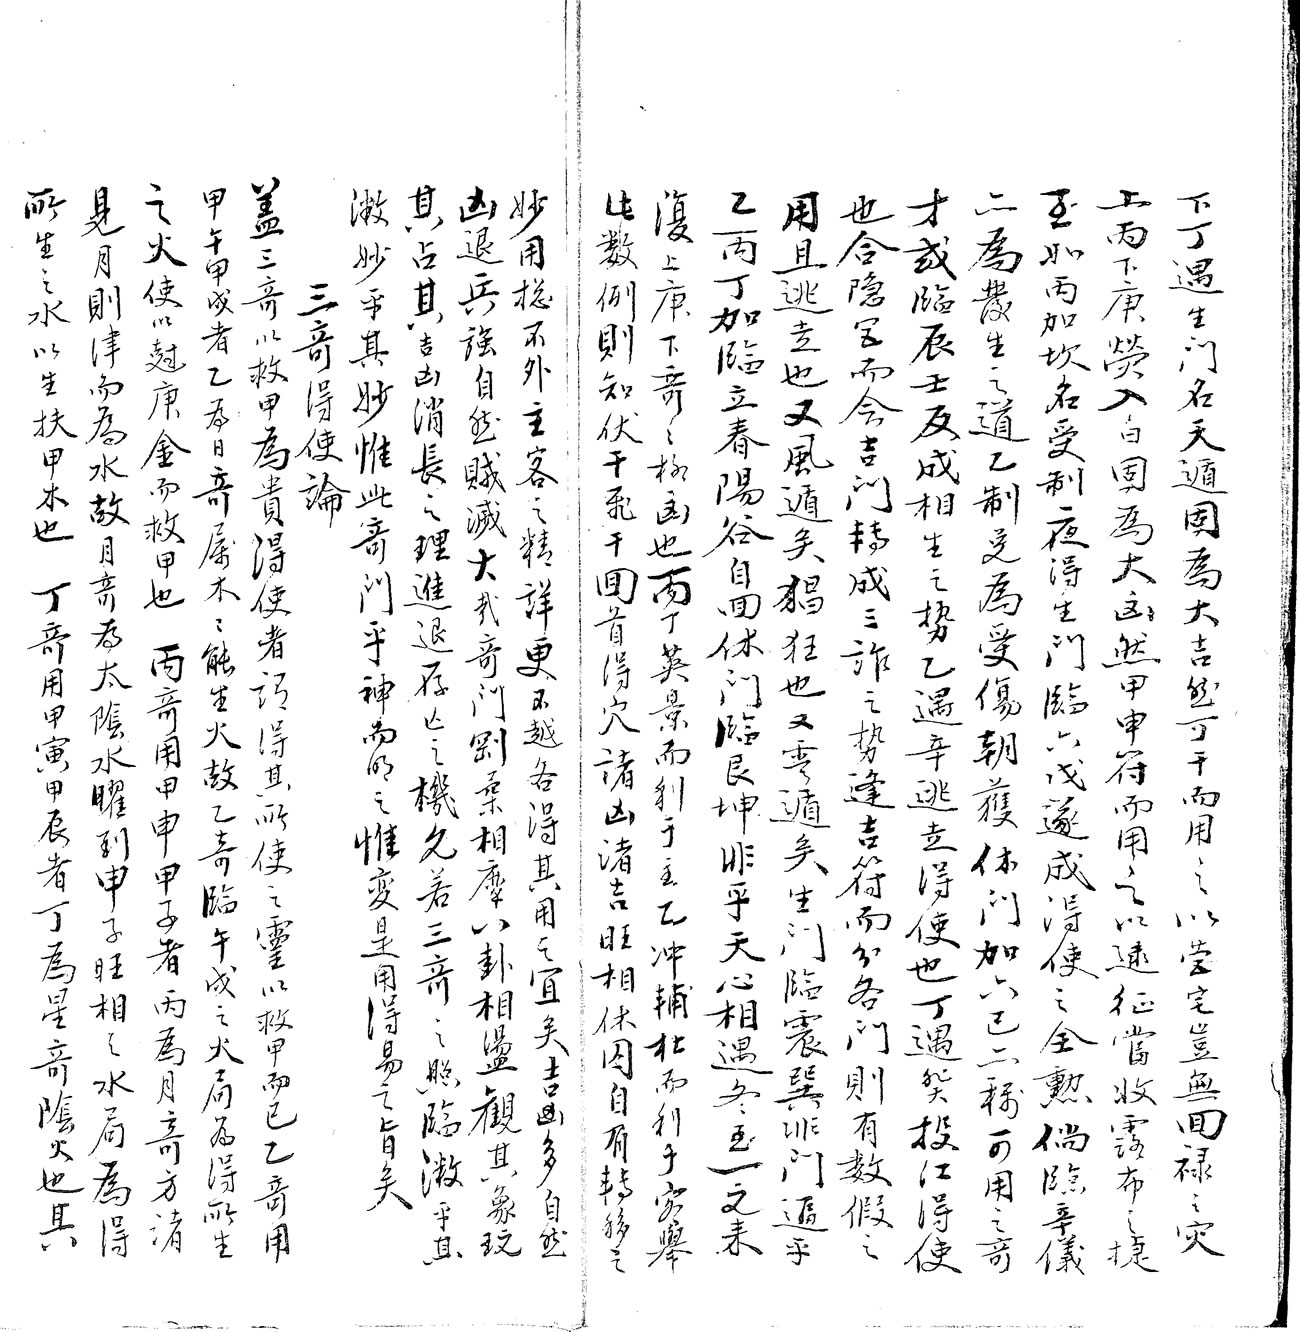 下丁遇生門名天遁固為大吉然丁干而用之以営宅豈無回祿之灾
上丙下庚熒入白固為大凶然甲申符而用之以遠征當收露布之捷
至如丙加坎名受制夜得生門臨六戊遂成得使之全勲倘臨辛儀
二為發生之道乙制兌為受傷朝獲休門加六己二稱可用之奇
才或臨辰士反成相生之勢乙遇辛逃走得使也丁遇癸投江得使
也合隐宮而会吉門轉成三詐之势逢吉符而分各門則有数假之
用且逃走也又風遁矣猖狂也又雲遁矣生門臨震巽非門逼乎
乙丙丁加臨立春陽谷自回休門臨艮坤非乎天心相遇冬至一文来
復上庚下奇之極凶也丙丁英景而利于主乙冲輔杜而利于客舉
此数例則知伏干飛干回首得穴諸凶渚吉旺相休囚自有轉移之
妙用捴不外主客之精詳更不越各得其用之宜矣吉凶多自然
凶退兵強自然賊滅大哉奇門剛柔相摩八卦相盪觀其象玩
其占其吉凶消長之理進退存亡之機久若三奇之照臨微乎其
微妙乎其妙惟此奇門乎神而明之惟变是用得易之旨矣
三奇得使論
盖三奇以救甲為貴得使者謂得其所使之靈以救甲而已乙奇用
甲午甲戌者乙為日奇属木々能生火故乙奇臨午戌之火局為得所生
之火使以尅庚金而救甲也　丙奇用甲申甲子者丙為月奇方諸
見月則津而為水故月奇為太陰水曜到申子旺相之水局為得
所生之水以生扶甲木也　丁奇用甲寅甲辰者丁為星奇陰火也其